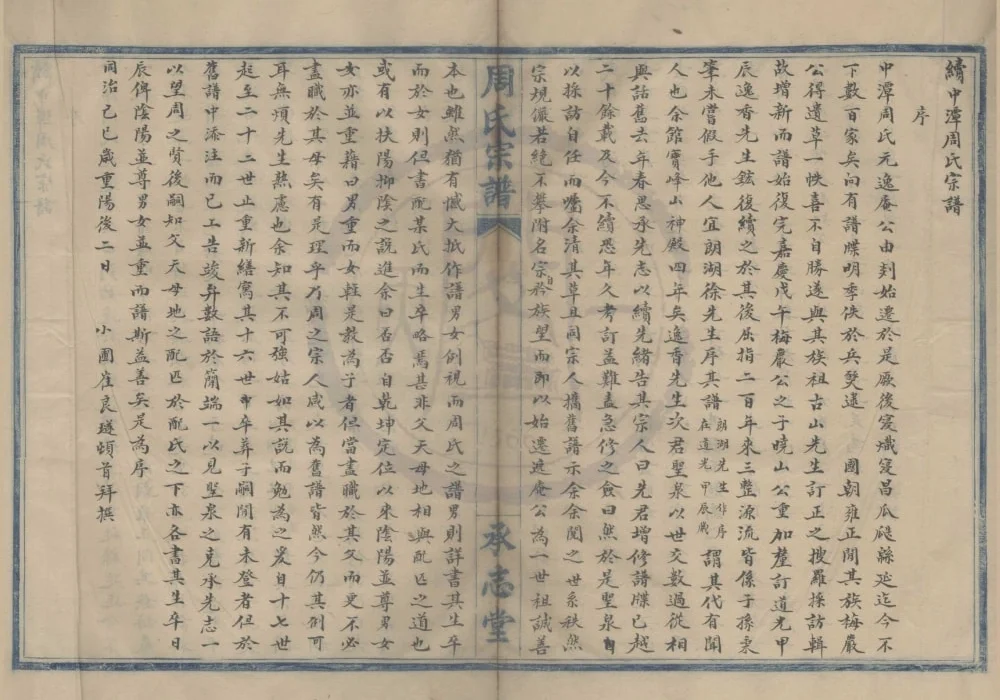 續中潭周氏宗譜
序
中潭周氏元逸庵公由剡始遷於是厥後寖熾寖昌瓜瓞緜延迄今不
下數百家矣向有譜牒明季佚於兵燹逮 國朝雍正間其族梅巖
公得遺草一帙喜不自勝遂與其族祖古山先生訂正之搜羅採訪輯
故增新而譜始復完嘉慶戊午梅巖公之子曉山公重加釐訂道光甲
辰逸香先生鉉復續之於其後屈指二百年來三整源流皆係子孫秉
筆未嘗假手他人宜朗湖徐先生序其譜朗湖先生作序在道光甲辰歲謂其代有聞
人也余館寶峰山神殿四年矣逸香先生次君聖泉以世交數過從相
與話舊去年春思承先志以續先緒告其宗人曰先君增修譜牒已越
二十餘載及今不續恐年久考訂益難盍急修之僉曰然於是聖泉自
以採訪自任而囑余清其草且同宗人攜舊譜示余余閱之世系秩然
宗規儼若絕不攀附名宗自矜族望而即以始遷逸庵公為一世祖誠善
周氏宗譜
承志堂
本也雖然猶有憾大抵作譜男女例視而周氏之譜男則詳書其生卒
而於女則但書配某氏而生卒略焉甚非父天母地相與配匹之道也
或有以扶陽抑陰之說進余曰否否自乾坤定位以來陰陽並尊男女
女亦並重藉曰男重而女輕是教為子者但當盡職於其父而更不必
盡職於其母矣有是理乎乃周之宗人咸以為舊譜皆然今仍其例可
耳無煩先生熟慮也余知其不可強姑如其說而勉為之爰自十七世
起至二十二世止重新繕寫其十六世中卒葬子嗣間有未登者但於
舊譜中添注而已工告竣弁數語於簡端一以見聖泉之克承先志一
以望周之賢後嗣知父天母地之配匹於配氏之下亦各書其生卒日
辰俾陰陽並尊男女並重而譜斯益善矣是為序
同治己巳歲重陽後二日 小圃崔良璲頓首拜撰